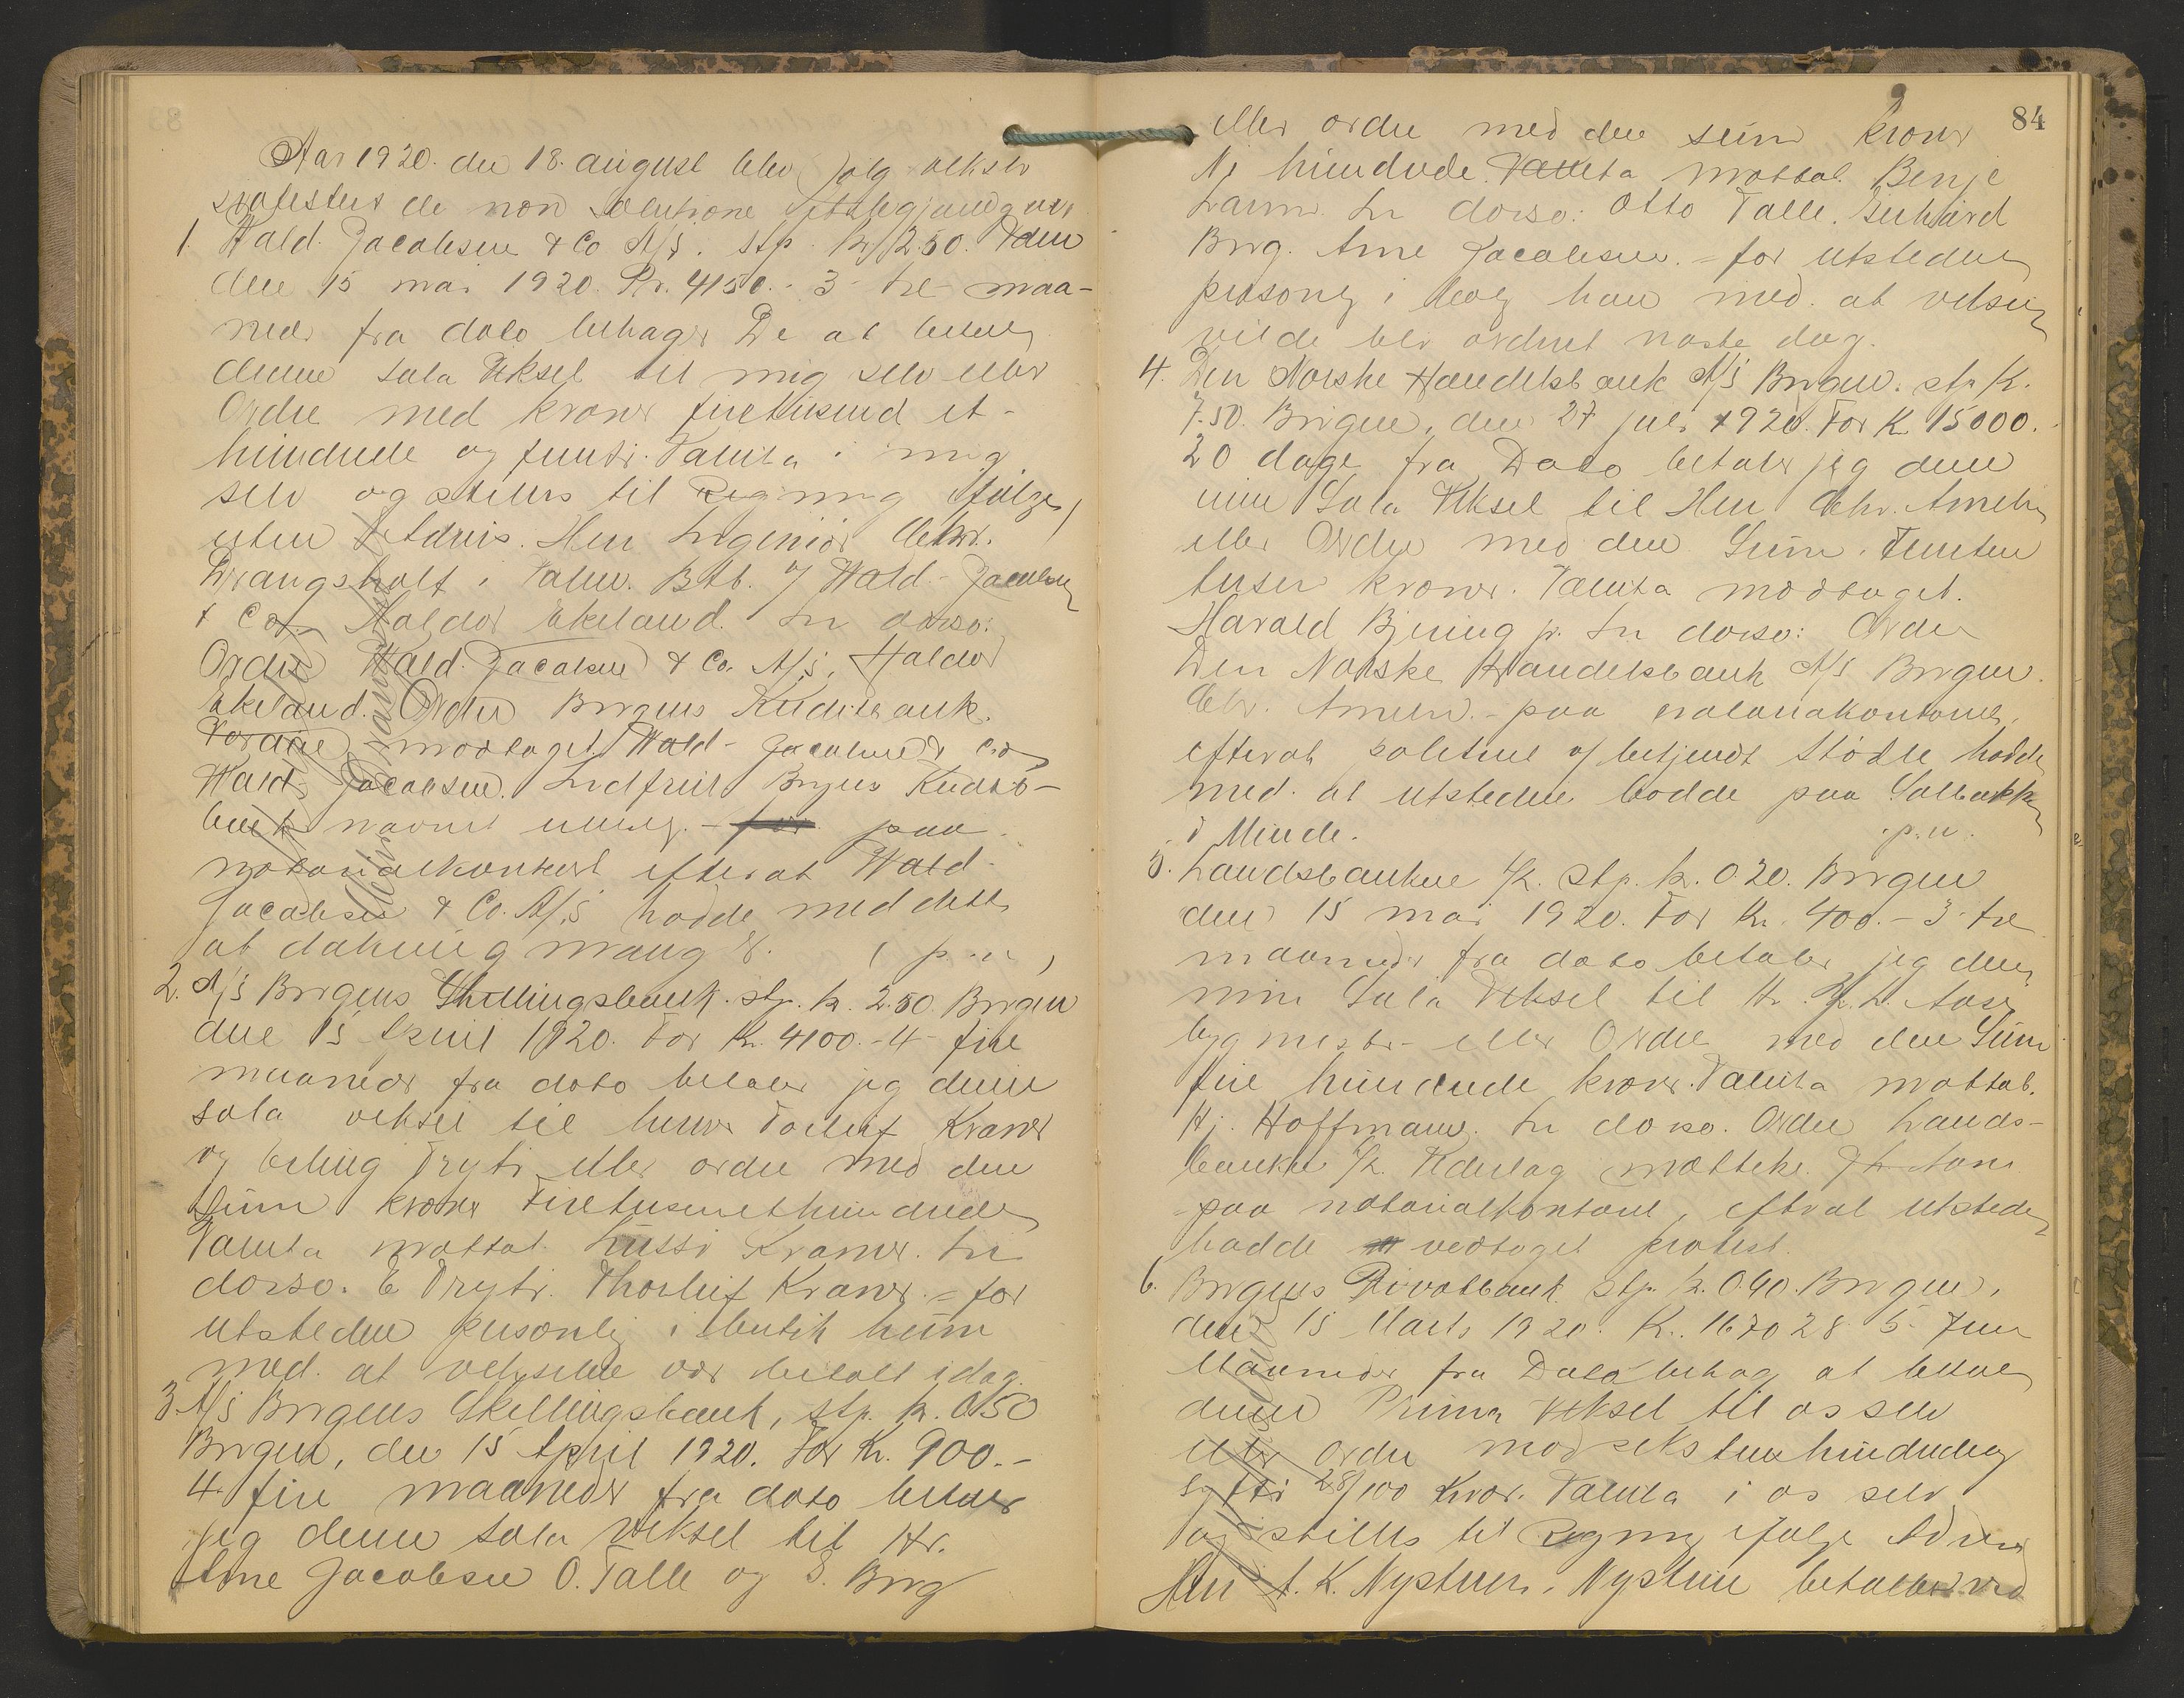 Aar 1920. den 18. august blev følg veksler
protestert de non solutione
1. Wald. Jacobsen & Co A/s. stp. kr 2.50.
den 15 mai 1920. Kr. 4150.- 3 - tre - maa-
neder fra dato behager De at betale
denne Sola Veksel til mig selv eller
Ordre med kroner firetusind et-
hundrede og femti. Valuta i mig
selv og stilles til Regning ifølge
uten Advis. Herr Ingeniør Chr.
Vrangsholt i Valw. Btb. f Wald. Jacobsen
& Co. Haldor Ekeland. In dorso:
Ordre Wald. Jacobsen & Co. A/s. Haldor
Ekeland. Ordre Bergens Kreditbank.
Værdie modtaget Wald. Jacobsen & Co
Wald. Jacobsen. Indfriet Bergens Kredit-
bank navnet - for paa
notarialkontoret efterat Wald.
Jacobsen & Co. A/s hadde meddelt
at dækning mangler. ( p.n )
2. A/s Bergens Skillingsbank. stp. kr. 2.50. Bergen
den 15 April 1920. For Kr. 4100.- 4 - fire
maaneder fra dato betaler jeg denne
sola veksel til herr Torleif Kraner
og Erling Dryti eller ordre med den
Sum kroner Firetusenethundrede
Valuta mottat. Lussi Kraner. In
dorso. E Dryti. Thorleif Kraner. - for
utstederen personlig i butik hun
med. at vekselen var betalt idag.
3. A/s Bergens Skillingsbank, stp. kr. 0.50
Bergen, den 15 April 1920. For Kr. 900.-
4. fire maaneder fra dato betaler
jeg denne sola veksel til Hr.
Arne Jacobsen O. Talle og S. Berg
84
eller ordre med den sum kroner
Ni hundrede. Valuta mottat. Benje
Larm. In dorso: Otto Talle. Gerhard
Berg. Arne Jacobsen. - for utstederen
personlig i bolig han med. at vekselen
vilde bli ordnet næste dag.
4. Den Norske Handelsbank A/s Bergen. stp K.
7.50. Bergen, den 27 juli 1920. For K. 15000.
20 dage fra Dato betaler jeg denne
min Sola Veksel til Herr Chr. Ameln
eller Ordre med den Sum. Femten
tusen kroner. Valuta modtaget.
Harald Bjering jr. In dorso: Ordre
Den Norske Handelsbank A/S Bergen.
Chr. Ameln. - paa notarialkontoret,
efterat politiet v/ betjendt Stødle hadde
med. at utstederen bodde paa Solbakken
i Minde. p.n.
5. Landsbanken A/L. Stp. kr. 0 20. Bergen
den 15 mai 1920. For Kr. 400.- 3 - tre
maaneder fra dato betaler jeg denne
min Sola Veksel til Hr. Aase
bygmester - eller Ordre med den Sum
fire hundrede kroner. Valuta mottat.
Hj. Hoffmann. In dorso. Ordre Lands-
banken A/L. Aase
- paa notarialkontoret, efterat utstederen
hadde vedtaget protest.
6. Bergens Privatbank. Stp. kr. 0.90. Bergen,
den 15 Marts 1920. K. 1670 28 5 - Fem
Maaneder fra Dato behag at betale
denne Prima Veksel til os selv
eller ordre med sekstenhundrede og
sytti 28/100 Kroner. Valuta i os selv
og stilles til Regning ifølge Advis
Herr A. K. Nystuen. Nystuen betalbar ved